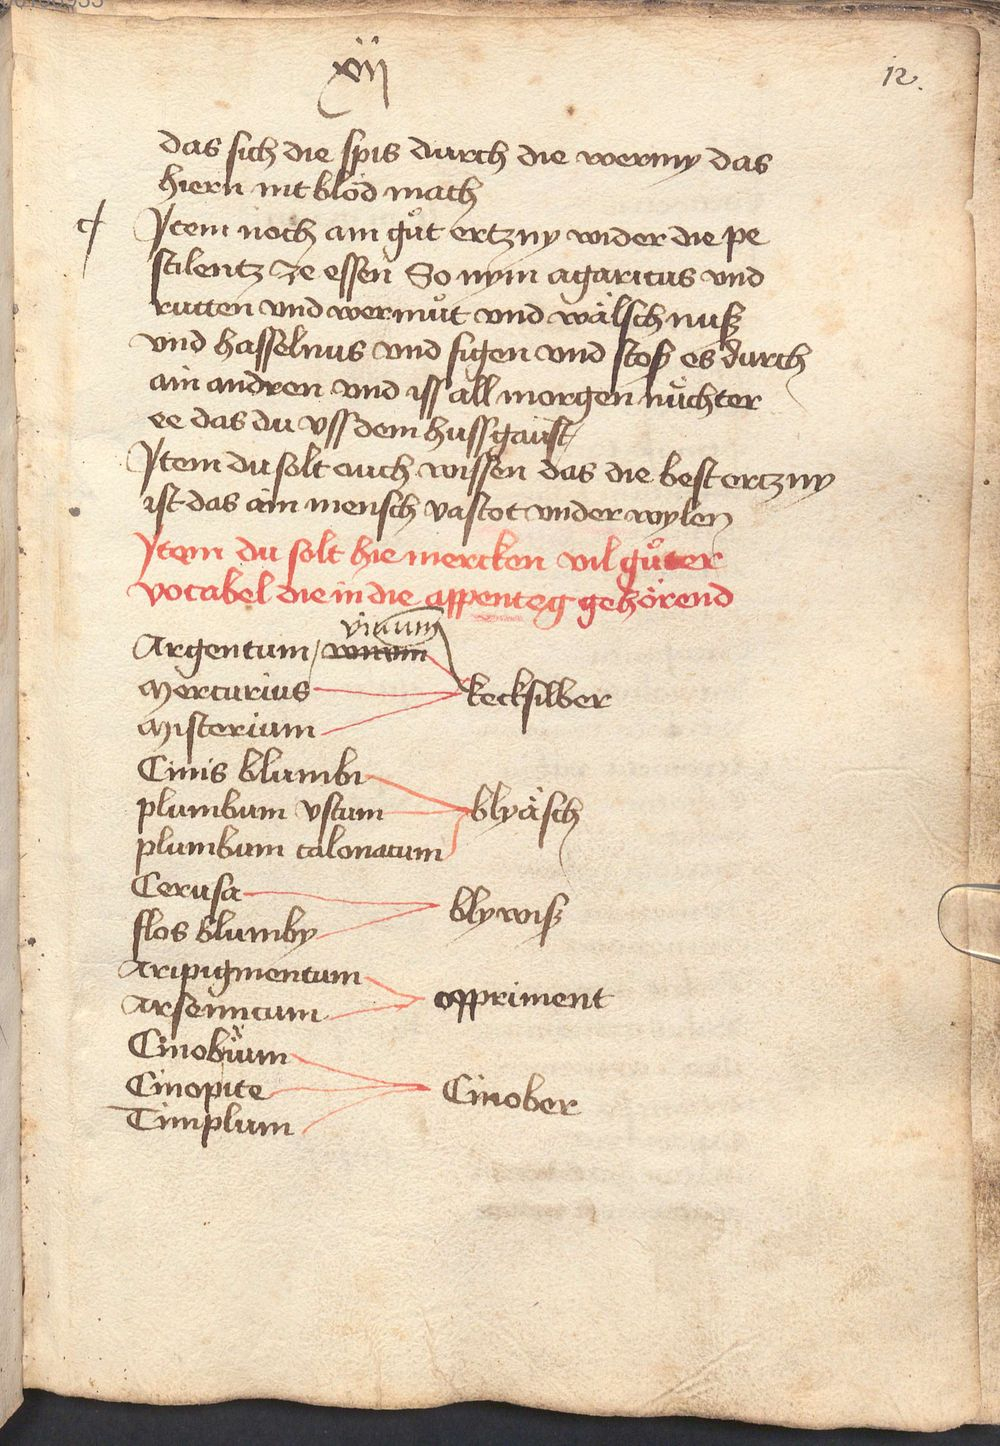 xij
12.
das sich die spis durch die wermy das
hiern nit blöd mach
Jtem noch ain gůt ertzny wider die pe
stilentz ze essen So nym agaricus vnd
rutten vnd wermůt vnd wälsch nuß
vnd hasselnus vnd figen vnd stoß es durch
ain andren vnd iss all morgen nüchter
ee das du vss dem huss gaust
Jtem du solt auch wissen das die best ertzny
ist das ain mensch vastot vnder wylen
Jtem du solt hie mercken vil gůter
vocabel die in die appenteg gehörend
viuum
Argentum
Mercurius kecksilber
Misterium
Cinis blumbi
plumbum vstum blyäsch
plumbum calonatum
Cerusa blywiß
flos blumby
Aripigmentum
Arsennicum oppriment
Cinobium
Cinopite Cinober
Timplum